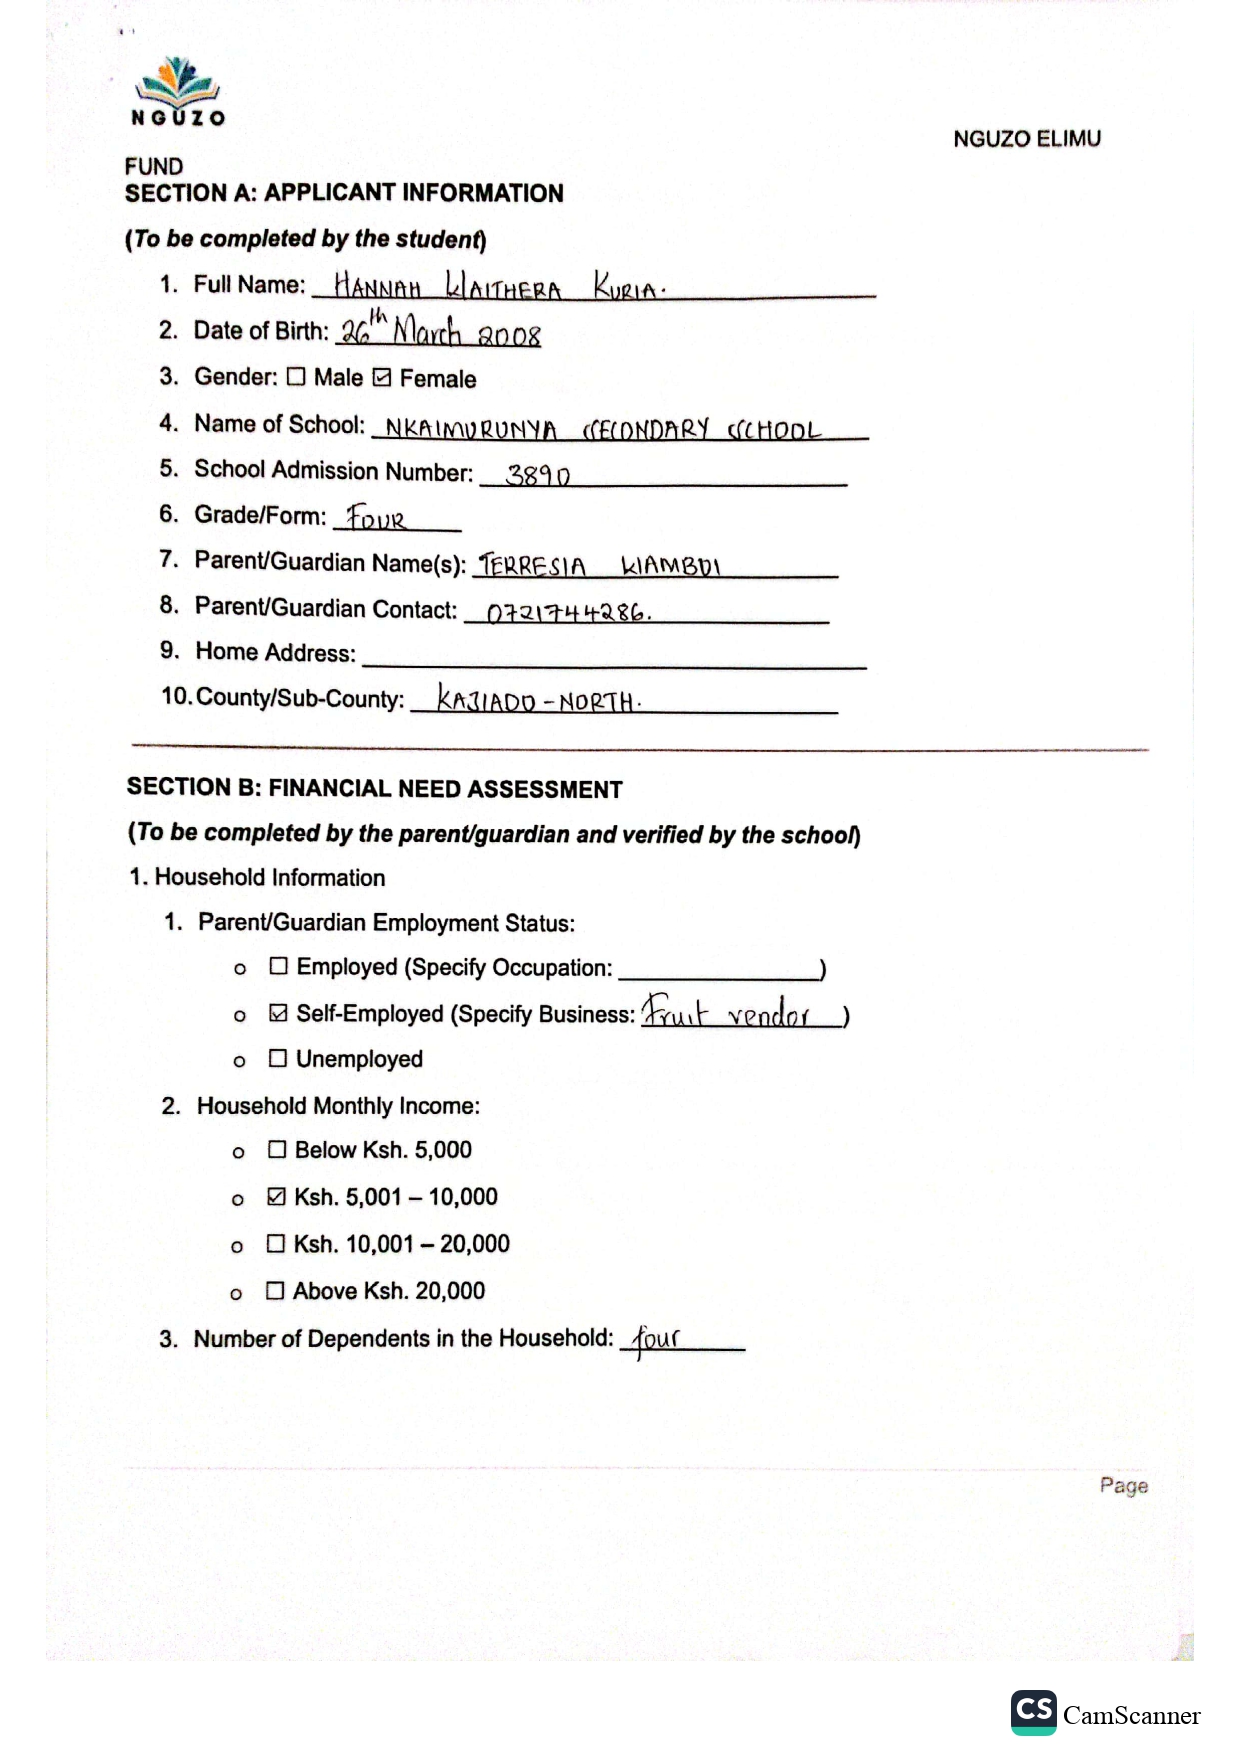 NGUZO
NGUZO ELIMU
FUND
SECTION A: APPLICANT INFORMATION
(To be completed by the student)
1. Full Name: HANNAH WAITHERA KURIA.
2. Date of Birth: 26th March 2008
3. Gender: ☐ Male ☑ Female
4. Name of School: NKAIMURUNYA SECONDARY SCHOOL
5. School Admission Number: 3890
6. Grade/Form: FOUR
7. Parent/Guardian Name(s): TERRESIA WAMBUI
8. Parent/Guardian Contact: 0721744286.
9. Home Address:
10. County/Sub-County: KAJIADO - NORTH.
SECTION B: FINANCIAL NEED ASSESSMENT
(To be completed by the parent/guardian and verified by the school)
1. Household Information
1. Parent/Guardian Employment Status:
o ☐ Employed (Specify Occupation: )
o ☑ Self-Employed (Specify Business: Fruit vendor )
o ☐ Unemployed
2. Household Monthly Income:
o ☐ Below Ksh. 5,000
o ☑ Ksh. 5,001 – 10,000
o ☐ Ksh. 10,001 – 20,000
o ☐ Above Ksh. 20,000
3. Number of Dependents in the Household: four
Page
CS CamScanner